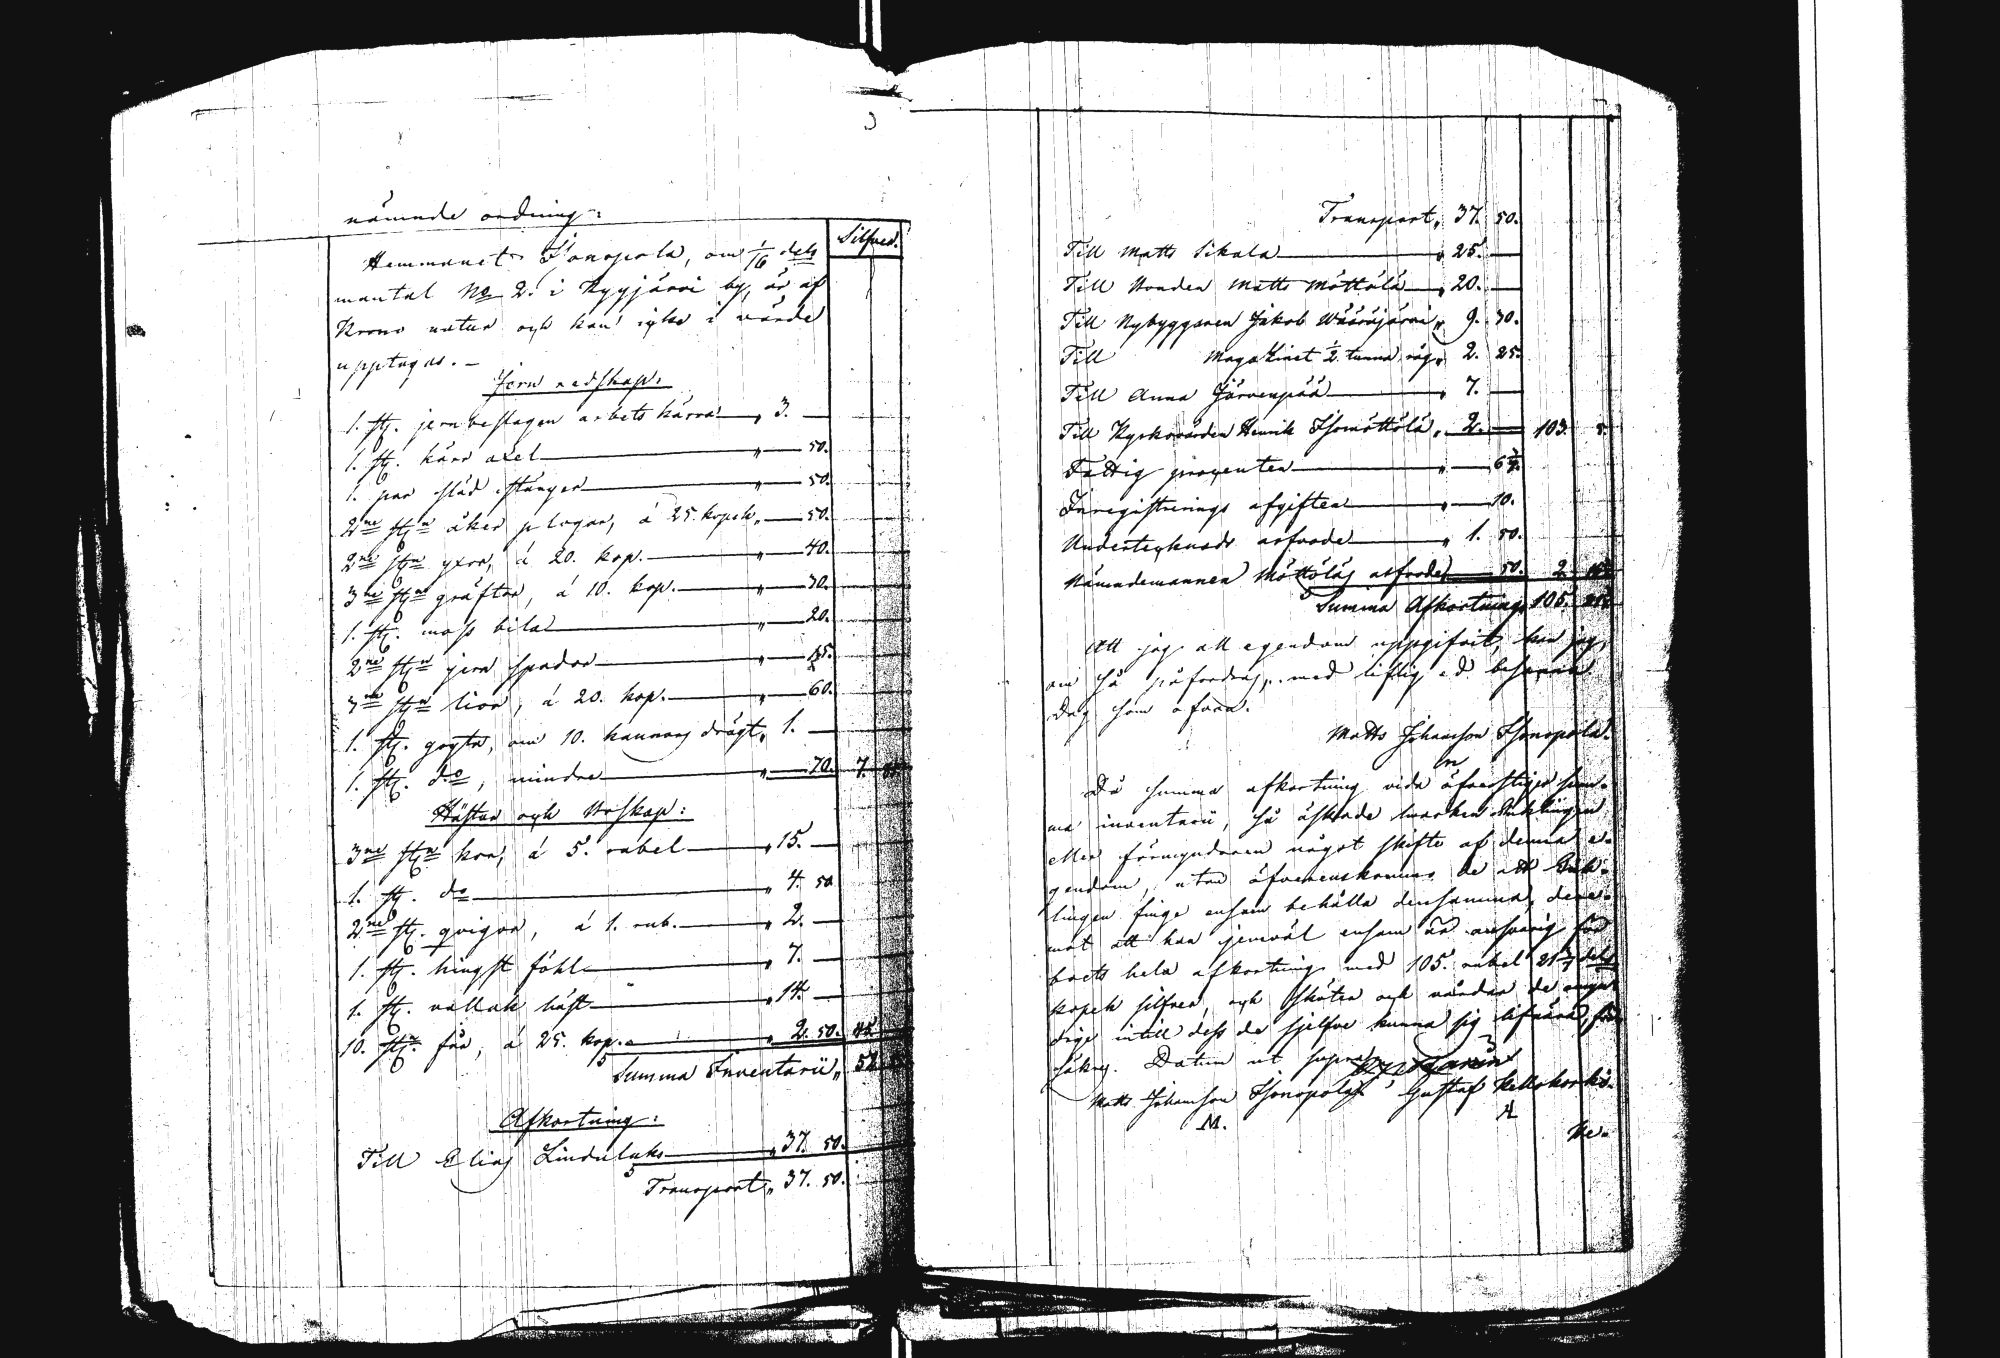 nämnde ordning:
Silfver.
Hemmanet Isonopola, om 1/16 dels
mantal No 2. i Kyyjärvi by, är af
Krono natur och kan icke i värde
upptagas. –
Jern redskap:
1. st. jernbeslagen arbets kärra " 3. —
1. st. kärr axel " — 50.
1. par släd stänger " — 50.
2ne st:n åker plogar, á 25. kopek " — 50.
2ne st:n yxor, á 20. kop. " — 40.
3ne st:n gräftor, á 10. kop. " — 30.
1. st. mass bila " — 20.
2ne st:n jern spadar " — 15.
3ne st:n liar, á 20. kop. " — 60.
1. st. gryta, om 10. kannors drägt " 1. —
1. st. do, mindre " — 70. 7.
Hästar och Boskap:
3ne st:n kor, á 5. rubel " 15. —
1. st. do " 4. 50
2ne st. qvigor, á 1. rub. " 2. —
1. st. hingst föhl " 7. —
1. st. vallak häst " 14. —
10. st:n får, á 25. kop. " 2. 50. 45.
Summa Inventarii " 52
Afkortning:
Till Elias Lindulaks " 37. 50.
Transport " 37. 50.
Transport " 37. 50.
Till Matts Sikala " 25. —
Till Bonden Matts Möttölä " 20. —
Till Nybyggaren Jakob Wääräjärvi " 9. 30.
Till Magazinet 1/2 tunna råg " 2. 25.
Till Anna Järvenpää " 7. —
Till Kyrkovärden Henrik Isomöttölä " 2. — 103. 5.
Fattig procenten " — 6 2/7.
Inregistrerings afgiften " — 10.
Undertecknads arfvode " 1. 50.
Nämndemannen Möttöläs arfvode — 50. 2.
Summa Afkortning 105.
Att jag all egendom uppgifvit, kan jag,
om så påfordras, med liflig ed besanna
Dag som ofvan.
Matts Johansson Isonopola.
Då summa afkortning vida öfverstiger sum-
ma inventarii, så äskade hvarken Enklingen
eller förmyndaren något skifte af denna e-
gendom, utan öfverenskommo de att Enk-
lingen finge ensam behålla densamma, dere-
mot att han jemväl ensam är ansvarig för
boets hela afkortning med 105. rubel 21 2/7 dels
kopek silfver, och sköta och vårdar de omyn-
dige intill dess de sjelfve kunna sig lifnära, för-
säkra. Datum ut supra
Matts Johansson Isonopola Gustaf Kellokorkö.
M.